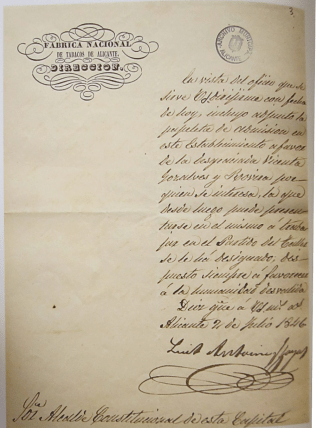 3
FABRICA NACIONAL
DE TABACOS DE ALICANTE.
DIRECCION.
ARCHIVO MUNICIPAL
ALICANTE
En vista del oficio que se
sirve V. dirigirme con fecha
de hoy, incluyo adjunta la
papeleta de admision en
este Establecimiento a favor
de la desgraciada Vicenta
Gozalves y por
quien se interesa, la que
desde luego puede presen-
tarse en el mismo á traba
jar en el Partido del
se le há designado, dis-
puesto siempre á favorecer
á la humanidad desvalida.
Dios gue á V. m.s a.s
Alicante 2 de Julio 1846
Luis Antonio
Sor. Alcalde Constitucional de esta Capital